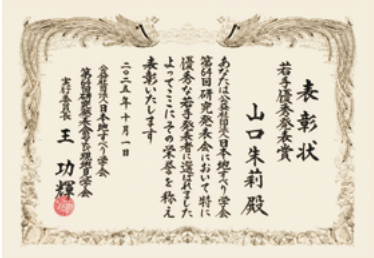 表彰状
若手優秀発表賞
山口朱莉殿
あなたは公益社団法人日本地すべり学会
第64回研究発表会において特に
優秀な若手発表者に選ばれました
よってここにその栄誉を称え
表彰いたします
二〇二五年十月一日
公益社団法人日本地すべり学会
第64回研究発表会及び現地見学会
実行委員長 王 功輝